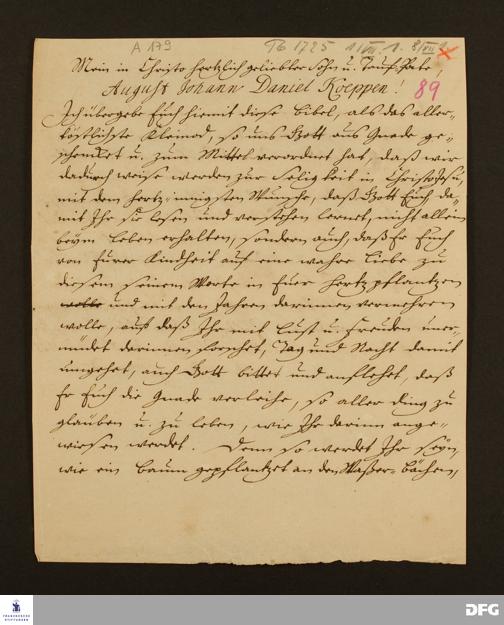 A 179
Mein in Christo hertzlich geliebter Sohn u. Tauf-Pate,
August Johann Daniel Koeppen!
89
Ich übergebe Euch hiemit diese Bibel, als das aller-
köstlichste Kleinod, so uns Gott aus Gnade ge-
schencket u. zum Mittel verordnet hat, daß wir
dadurch weise werden zur Seligkeit in Christo Jesu,
mit dem hertz-innigsten Wunsche, daß Gott Euch da-
mit Ihr sie lesen und verstehen lernet, nicht allein
beym Leben erhalten, sondern auch, daß Er Euch
von Eurer Kindheit auf eine wahre Liebe zu
diesem seinem Worte in Euer Hertz pflantzen
wolle und mit den Jahren darinnen vermehren
wolle, auf daß Ihr mit Lust u. Freuden uner-
müdet darinnen forschet, Tag und Nacht damit
umgehet, auch Gott bittet und anflehet, daß
Er Euch die Gnade verleihe, so aller ding zu
glauben u. zu leben, wie Ihr darinn ange-
wiesen werdet. Denn so werdet Ihr seyn,
wie ein Baum gepflantzet an den Waßer-Bächen,
FRANCKESCHE
STIFTUNGEN
DFG